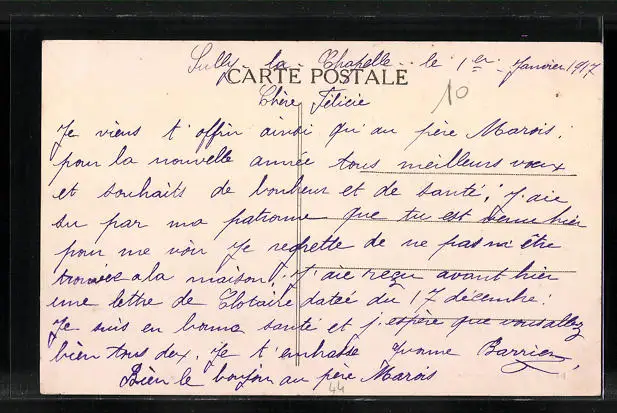 Sully la Chapelle le 1er Janvier 1917
CARTE POSTALE
10
Chère Félicie
Je viens t'offrir ainsi qu'au père Marois.
pour la nouvelle année tous meilleurs vœux
et souhaits de bonheur et de santé; J'aie
su par ma patronne que tu est venue hier
pour me voir Je regrette de ne pas m'être
trouvée a la maison; J'aie reçu avant hier
une lettre de Clotaire datée du 17 décembre.
Je suis en bonne santé et j'espère que vous allez
bien tous deux. Je t'embrasse Yvonne Barrier
Bien le bonjour au père Marois
44